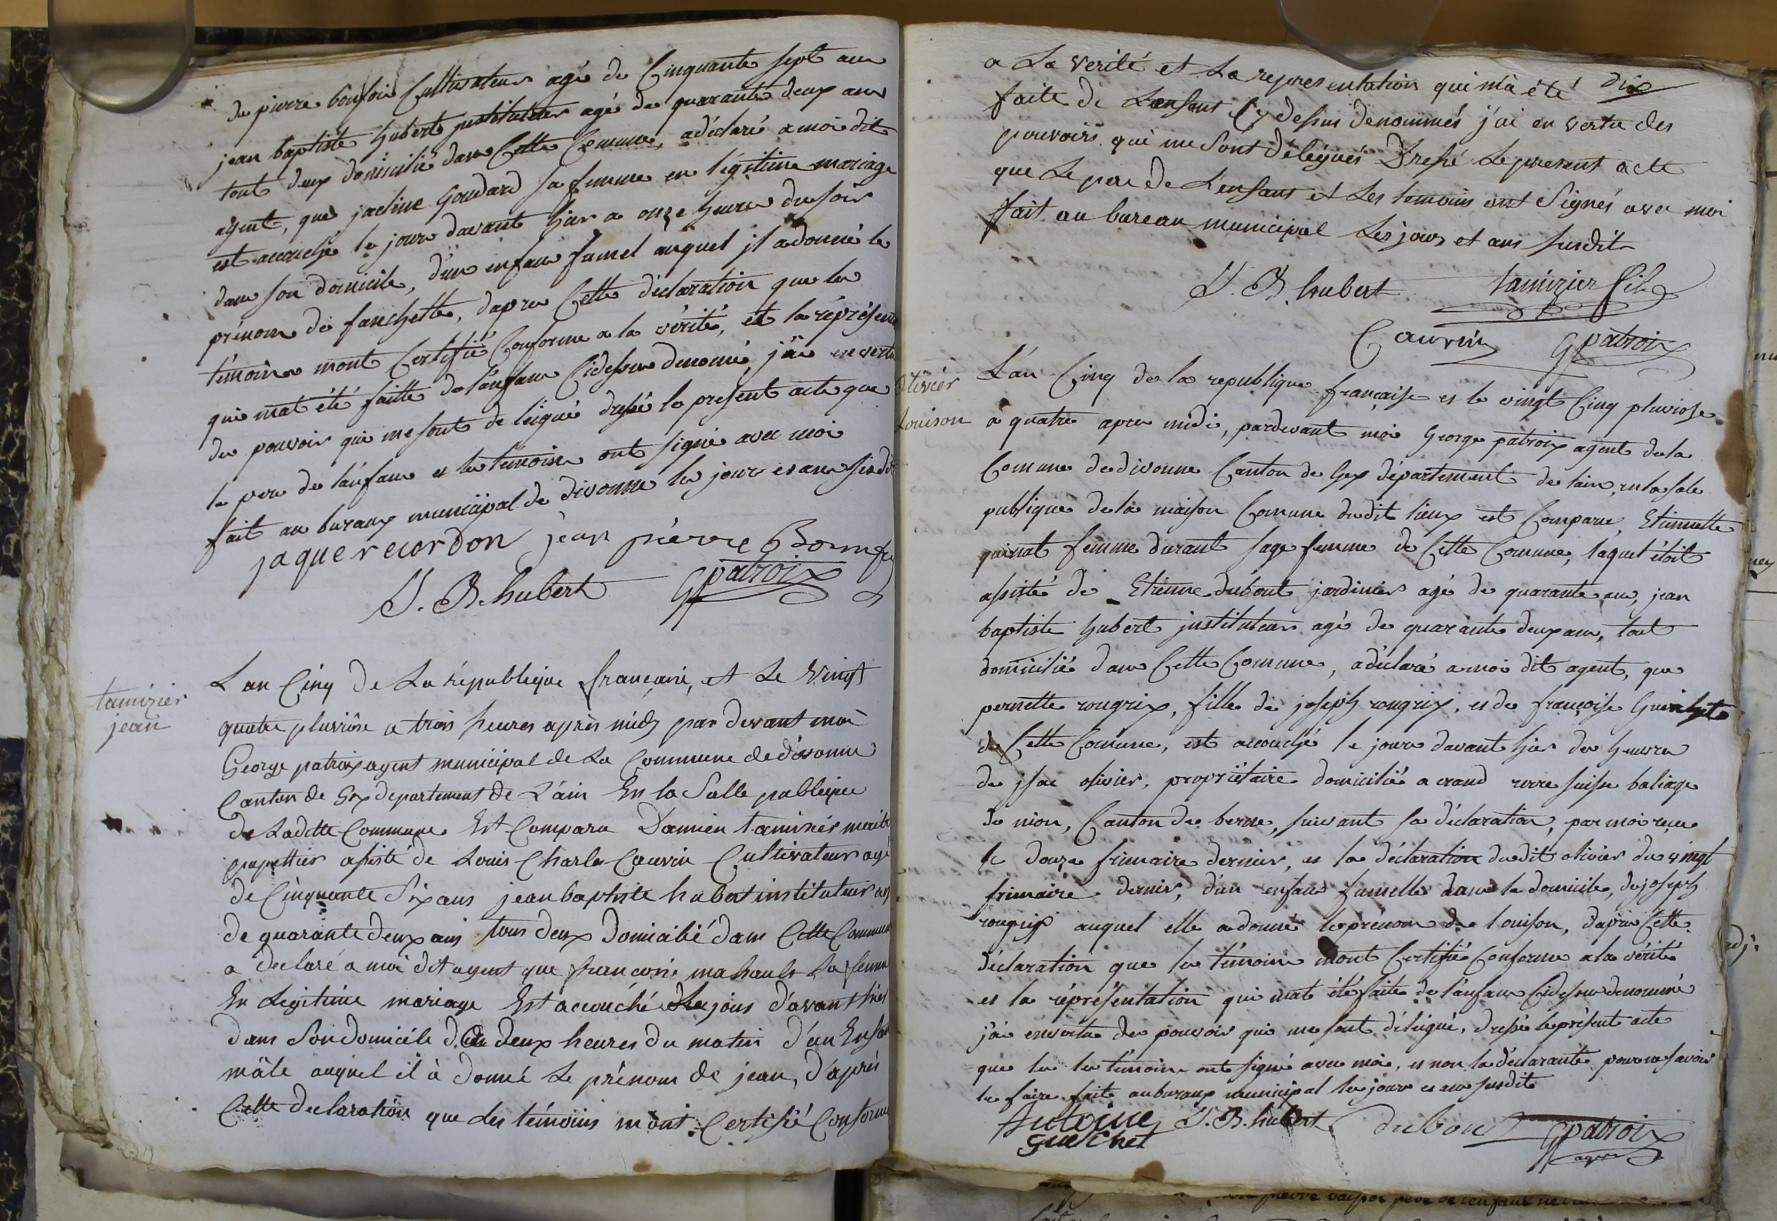 de pierre bonfoin Cultivateur agé de Cinquante sept ans
jean baptiste hubert jnstituteur agé de quarante deux ans
tout deux domicilié dans Cette Comune, adéclaré a moi dit
agent, que jacline Goudard sa femme en légitime mariage
est accouché le jour davant hier a onze heure du soir
dans son domicile, d'un enfan fumel auquel jl adonné le
prénom de fanchette, dapres Cette déclaration que les
témoins mont Certifié Conforme a la vérité, et la représen
qui mat été faitte de lanfan Cidessus denomé, jai en vertu
des pouvoir qui me sont de légué dressé le present acte que
le pere de lanfan et les témoins ont signé avec moi
fait au buraux municipal de divonne les jour et an susdit
jaque recordon jean piérre Bonnf
J. B. hubert GPatroix
tamizier
jean
L'an Cinq De La république française, et Le vingt
quatre pluviôse a trois heures après midy par devant moi
George patroix agent municipal de La Commune de divonne
Canton de Gex departement de L'ain En la Salle publique
de Ladite Commune Est Comparu Damien tamisier
papettier assisté de Louis Charle Cauvin Cultivateur agé
de Cinquante Six ans jean baptiste hubert instituteur ag
de quarante deux ans tous deux Domicilié dans Cette Commun
a declaré a moi dit agent que françoise mahault Sa femme
En Legitime mariage Est accouché Le jour d'avant hier
dans Son domicile à deux heures du matin d'un Enfan
mâle auquel il à donné Le prénom de jean, d'après
Cette declaration que les témoins m'ont Certifié Conforme
a La verité et La representation qui m'à été dix
faite de L'enfant Cy dessus dénommés j'ai en vertu des
pouvoirs qui me Sont délégués Dressé Le present acte
que Le pere de L'enfant et Les temoins ont Signés avec moi
fait au bureau municipal Les jours et ans susdits
J. B. hubert tamizier fils
Cauvin GPatroix
Olivier
Louison
L'an Cinq de la republique française et le vingt Cinq pluviose
a quatre apres midi, pardevant moi George patroix agent de la
Comune de divonne Canton de Gex departement de lain, en la sale
publique de la maison Comune dudit lieux est Comparue Etiennette
quinat femme durant sage femme de Cette Comune, laquel étoit
assisté de Etienne dubout jardinier agé de quarante ans, jean
baptiste hubert jnstituteur agé de quarante deux ans, tout
domicilié dans Cette Comune, adéclaré a moi dit agent, que
pernette rougrix, fille de joseph rougrix, et de françoise Guerchet
de Cette Comune, est accouché le jour davant hier des heures
de jsac olivier, propriétaire domicilié a crand suisse baliage
de nion, Canton de berne, suivant sa déclaration, par moi reçue
le douze frimaire dernier, et la déclaration dudit olivier du vingt
frimaire dernier, d'un enfan fumelle dans le domicile, de joseph
rougrix auquel elle adonné le prénom de louison, dapres Cette
déclaration que les témoins mont Certifié Conforme a la vérité
et la réprésentation qui mat été faite de lanfan Cidessus denommé
j'ai en vertu des pouvoir qui me sont délégué, dressé le présent acte
que les les témoins ont signé avec moi, et non la déclarante pour ne savoir
le faire fait au buraux municipal les jour et an susdit
Antoine J. B. hubert dubout GPatroix
Guerchet agent